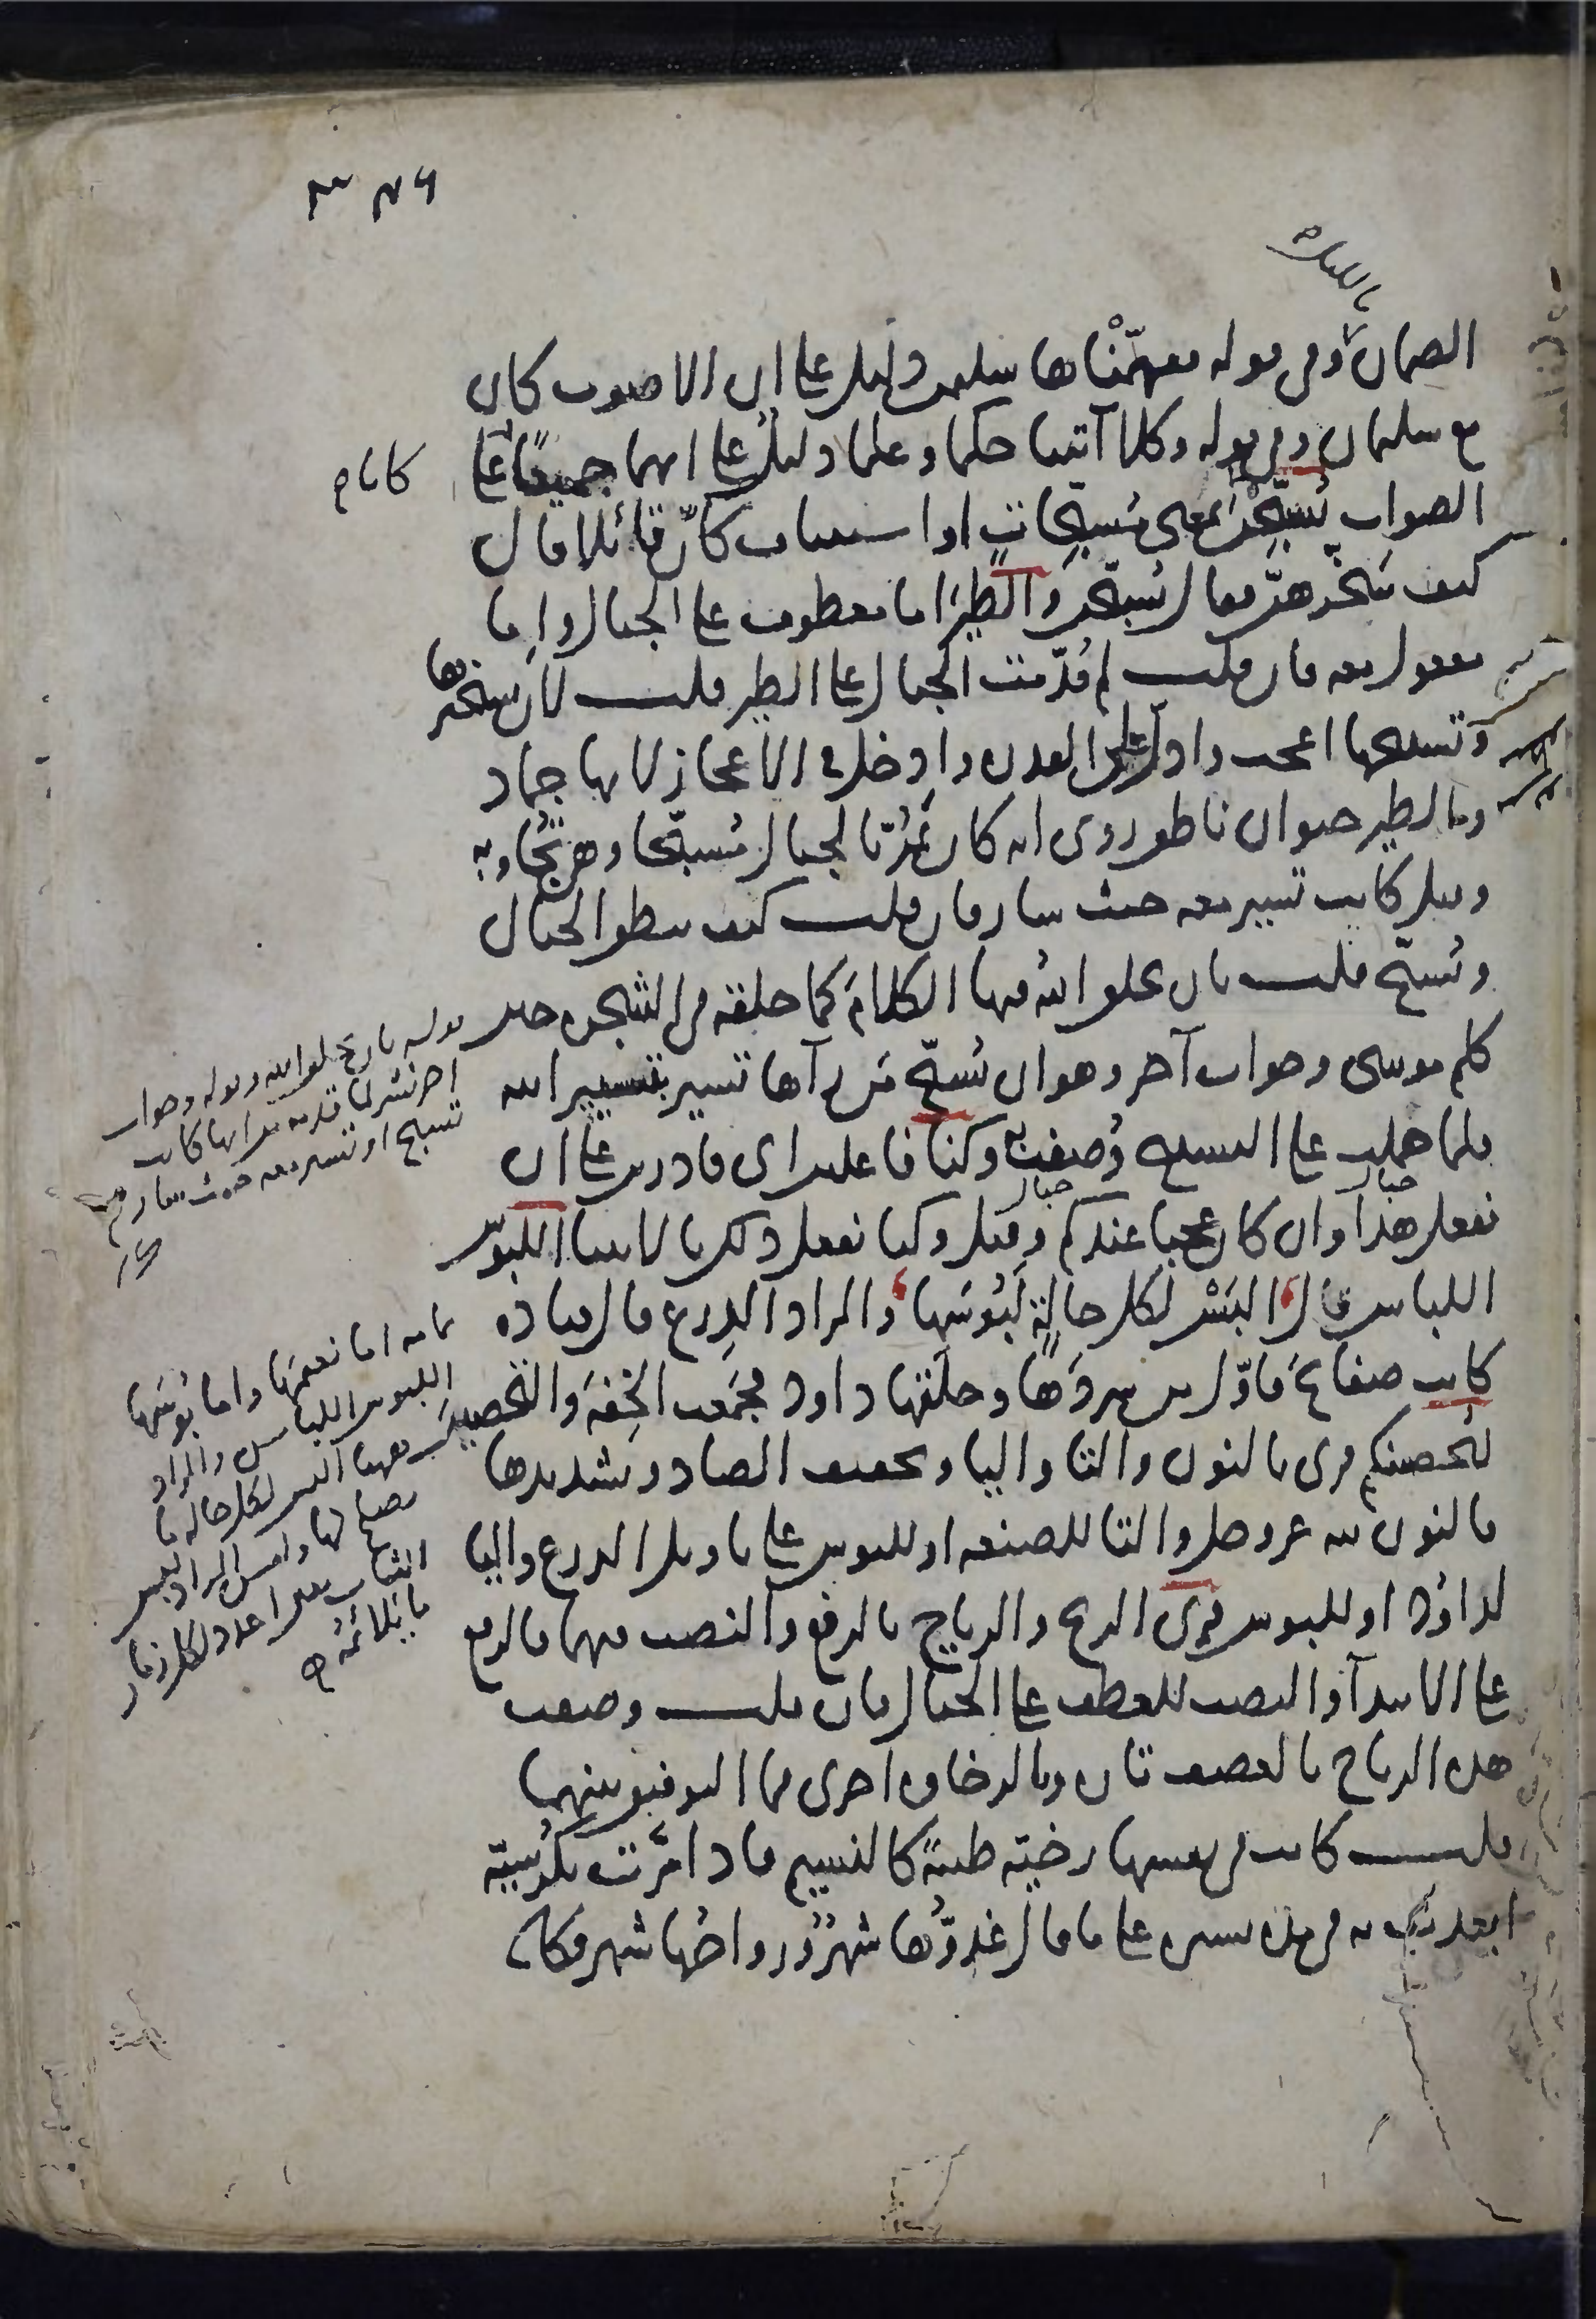 بالليل
الضمان وفي قوله ففهّمْناها سليمن دليل على ان الاصوب كان
مع سليمان وفي قوله وكلا آتينا حكما وعلما دليلٌ على انهما جميعًا على
كانا م
الصواب يُسبّحْنَ بمعنى مُسبحاتٍ او استيناف كأنّ قائلا قال
كيف سَخّرهنّ فقال يُسبّحن والطيرَ اما معطوف على الجبال واما
مفعول معه فان قلت لم قُدّمت الجبال على الطير قلت لان تسخيرها
وتسبيحها اعجب وادلّ على القدرة وادخل في الاعجاز لانها جماد
والطير حيوان ناطق روى انه كان يَمُرّ بالجبال مُسبّحا وهي تُجاوبه
وقيل كانت تسير معه حيث سار فان قلت كيف تنطق الجبال
وتُسبّح قلت بان يخلق اللهُ فيها الكلامَ كما خلقه في الشجرة حين
كلم موسى وجواب آخر وهو ان يُسبّح مَن رآها تسير بتسيير الله
فلما حملت على التسبيح وُصفت به وكنا فاعلين اى قادرين على ان
نفعل هذا وان كان عجبا عندكم وقيل وكنا نفعل ذلك بالانبيا اللبوس
اللباس قال البَسْ لكل حالةٍ لَبُوسَها والمراد الدِرع قال قتاده
كانت صفائحَ فاوّل من سردَها وحلّقها داود فجمَعت الخِفةَ والتحصينَ
لتُحصنكم قرى بالنون والتا واليا وتخفيف الصاد وتشديدها
فالنون لله عز وجل والتا للصنعه او للبوس على تاويل الدرع واليا
لداوُد او للبوس قرى الريح والرياح بالرفع والنصب فيهما فالرفع
على الابتدآ والنصب للعطف على الجبال فان قلت وصفت
هذه الرياح بالعصف تارة وبالرخاوه اخرى فما التوفيق بينهما
قلت كانت في نفسها رخيّه طيبةً كالنسيم فاذا مَرّت بكرسيّه
ابعدت به في مدة يسيره على ما قال غدوُّها شهرٌ ورواحُها شهر فكان
قوله بان يخلق الله وقوله وجواب
اخر نشر لما قدمه من انها كانت
تسبح او تسير معه حيث سار م
تمامه اما نعيمَها واما بُوسَها
اللبوس اللباس والمراد
معنى البس لكل حاله ما
يصلح لها وليس المراد لبس
الثياب بل اعدد لكل زمان
ما يلائمُه